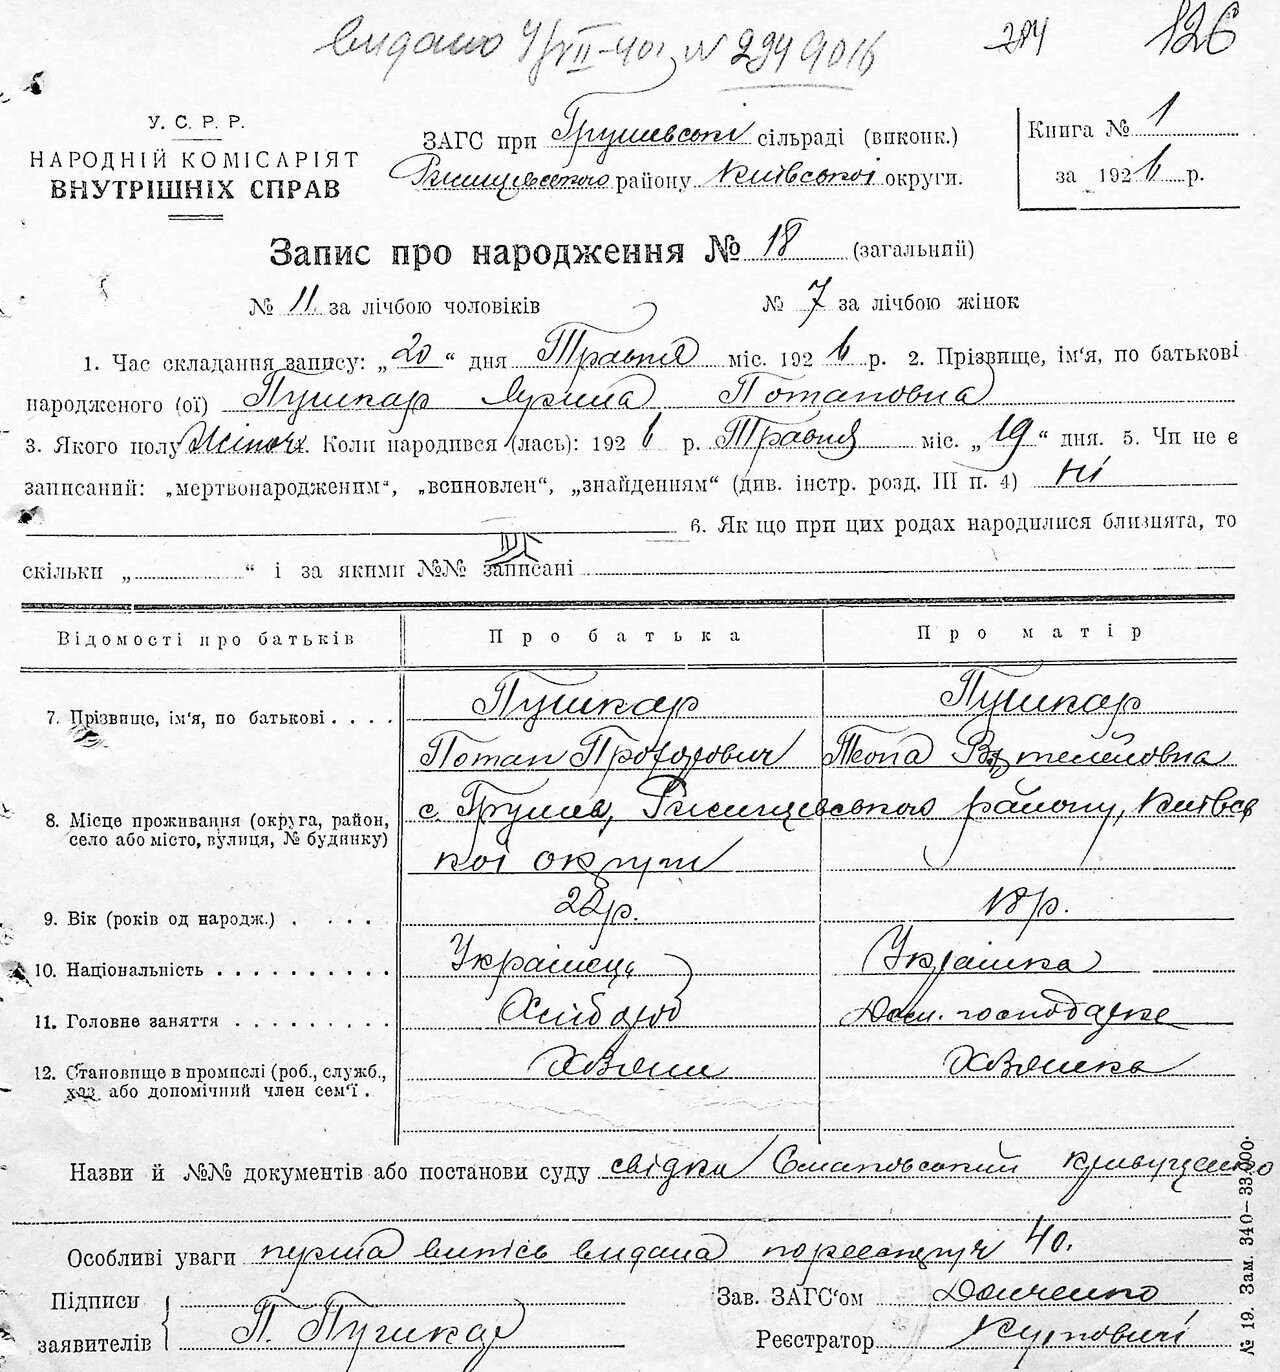 видано 4/XII-40 № 2949016 284 126
У. С. Р. Р.
НАРОДНІЙ КОМІСАРІЯТ
ВНУТРІШНІХ СПРАВ
ЗАГС при Грушевські сільраді (виконк.)
Ржищевського району Київської округи.
Книга № 1
за 1926 р.
Запис про народження № 18 (загальний)
№ 11 за лічбою чоловіків № 7 за лічбою жінок
1. Час складання запису: „20“ дня Травня міс. 1926 р. 2. Прізвище, ім‘я, по батькові
народженого (ої) Пушкар Ярина Потаповна
3. Якого полу Жіноч. Коли народився (лась): 1926 р. Травня міс. „19“ дня. 5. Чи не є
записаний: „мертвонародженим“, „всиновлен“, „знайденням“ (див. інстр. розд. III п. 4) ні
6. Як що при цих родах народилися близнята, то
скільки „ “ і за якими №№ записані
Відомості про батьків Про батька Про матір
7. Прізвище, ім‘я, по батькові . . . . Пушкар Пушкар
Потап Прохорович
8. Місце проживання (округа, район, село або місто, вулиця, № будинку) с. Грушев, Ржищевського району, Київсь
кої округи
9. Вік (років од народж.) . . . . 22р. 18р.
10. Національність . . . . . . . . . . Українець Українка
11. Головне заняття . . . . . . . . . Хлібороб Дом. господарка
12. Становище в промислі (роб., служб., хаз. або допомічний член сем‘ї . Хазяин Хазяика
Назви й №№ документів або постанови суду свідки
Особливі уваги перша випись видана по реєстру 40.
Підписи
заявителів П. Пушкар
Зав. ЗАГС‘ом Донченко
Реєстратор
№ 19. Зам. 340—33.000.